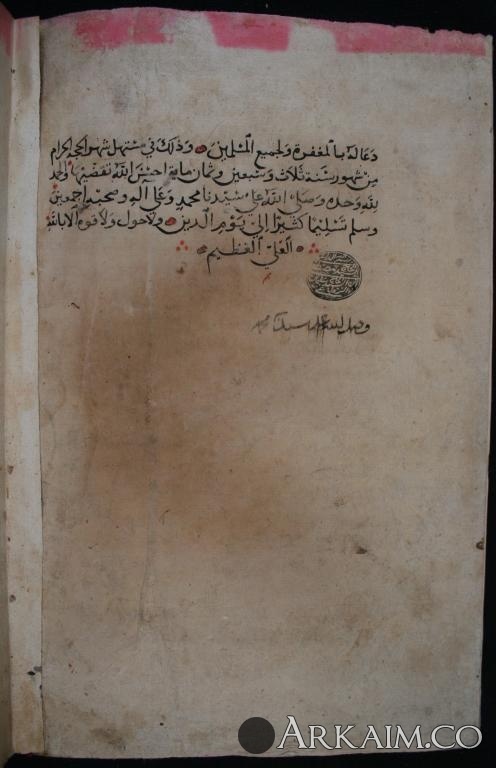 دعا له بالمغفرة ولجميع المسلمين وذلك في مستهل شهر الحجة الحرام
من شهور سنة ثلاث وسبعين وثمان ماية احسن الله تقضيها والحمد
لله وحده وصلى الله على سيدنا محمد وعلى آله وصحبه اجمعين
وسلم تسليما كثيرا الى يوم الدين ولا حول ولا قوة الا بالله
العلي العظيم
وصلى الله على سيدنا محمد
ARKAIM.CO